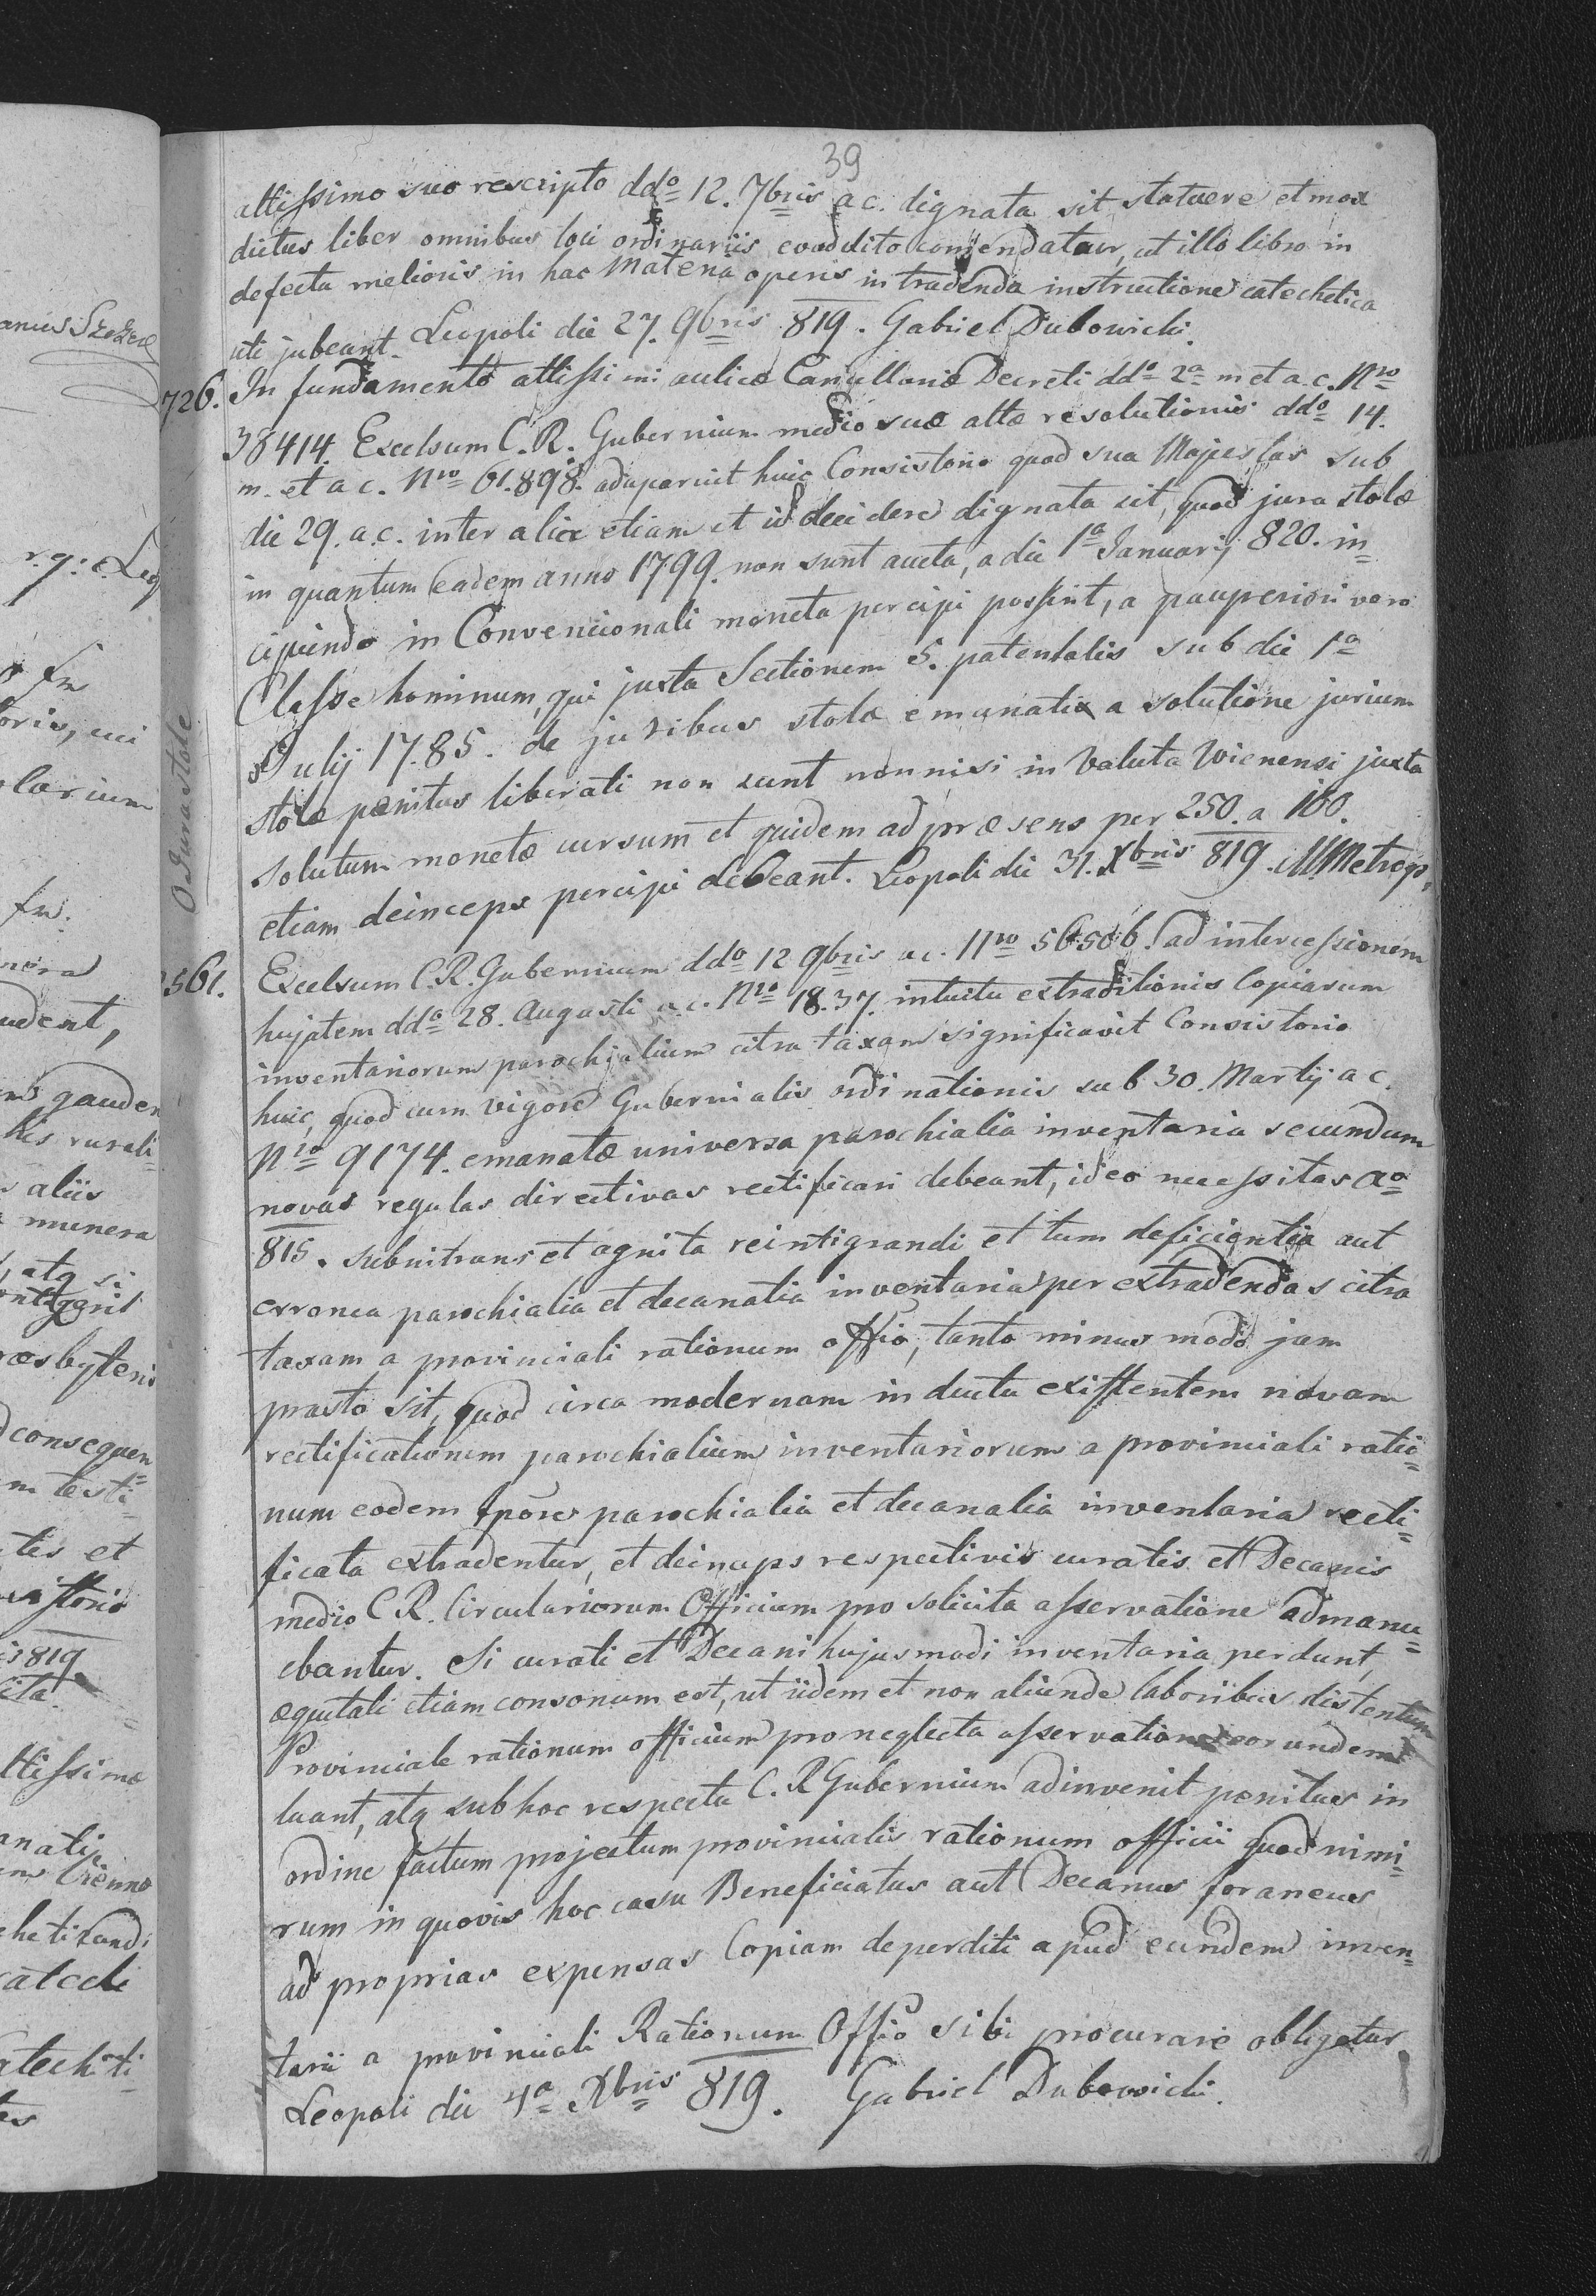 39
altissimo suo rescripto ddo 12. 7bris a c. dignata sit statuere et mox
dictus liber omnibus loci ordinariis eo addito comendatur, ut illo libro in
defectu melioris in hac Materia operis in tradenda instructione catechetica
uti jubeant. Leopoli die 27. 9bris 819. Gabriel Dubowicki.
726. In fundamento altissimi aulicæ Cancellariæ Decreti ddo 2a m et a. c. Nro
38414. Excelsum C. R. Gubernium medio suæ altæ resolutionis ddo 14.
m. et a c. Nro 61.898. adaperuit huic Consistorio quod sua Majestas sub
die 29. a.c. inter alia etiam et id decidere dignata sit, quod jura stolæ
in quantum eadem anno 1799. non sunt aucta, a die 1a Januarij 820. in=
cipiendo in Convencionali moneta percipi possint, a pauperiori vero
Classe hominum, qui juxta Sectionem 5. patentalis sub die 1a
Julij 1785. de juribus stolæ emanatæ a solutione jurium
stolæ penitus liberati non sunt nonnisi in Valuta Wienensi juxta
solutum monetæ cursum et quidem ad præsens per 250. a 100.
etiam deinceps percipi debeant. Leopoli die 31. Xbris 819. M Metrop.
O Jura stole
561. Excelsum C. R. Gubernium ddo 12 9bris ac. Nro 56506. ad intercessionem
hujatem ddo 28. Augusti a.c. Nro 18.37. intuitu extraditionis Copiarum
inventariorum parochialium citra taxam significavit Consistorio
huic, quod cum vigore Gubernialis ordinationis sub 30. Martij a c.
Nro 9174. emanatæ universa parochialia inventaria secundum
novas regulas directivas rectificari debeant, ideo necessitas ao
815. subnitrans et agnita reintigrandi et tum deficientia aut
erronea parochialia et decanatia inventaria per extradendas citra
taxam a provinciali rationum offio, tanto minus modo jam
præsto sit, quod circa modernam in ductu existentem novam
rectificationem parochialium inventariorum a provinciali ratio=
num eodem tpore parochialia et decanalia inventaria recti=
ficata extradentur, et deinceps respectivis curatis et Decanis
medio C R. Circulariorum Officium pro solicita asservatione admanu=
ebantur. Si curati et Decani hujusmodi inventaria perdunt,
æquitati etiam consonum est, ut iidem et non aliunde laboribus distentum
Provinciale rationum officium pro neglecta asservatione eorundem
luant, atq sub hoc respectu C. R Gubernium adinvenit penitus in
ordine factum projectum provincialis rationum officii quod nimi=
rum in quovis hoc casu Beneficiatus aut Decanus foraneus
ad proprias expensas Copiam deperditi apud eundem inven=
tarii a provinciali Rationum Offio sibi procurare obligetur
Leopoli die 4a Xbris 819. Gabriel Dubowicki.